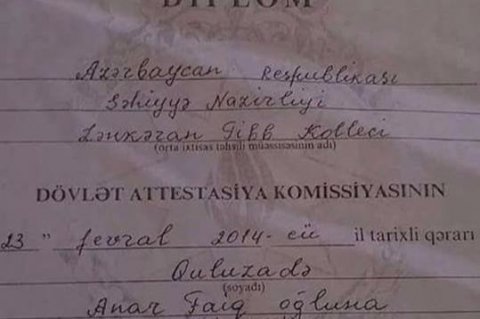 DİPLOM
Azərbaycan Respublikası
Səhiyyə Nazirliyi
Lənkəran Tibb Kolleci
(orta ixtisas təhsili müəssisəsinin adı)
DÖVLƏT ATTESTASİYA KOMİSSİYASININ
23 " fevral 2014-cü il tarixli qərarı
Quluzadə
(soyadı)
Anar Faiq oğluna